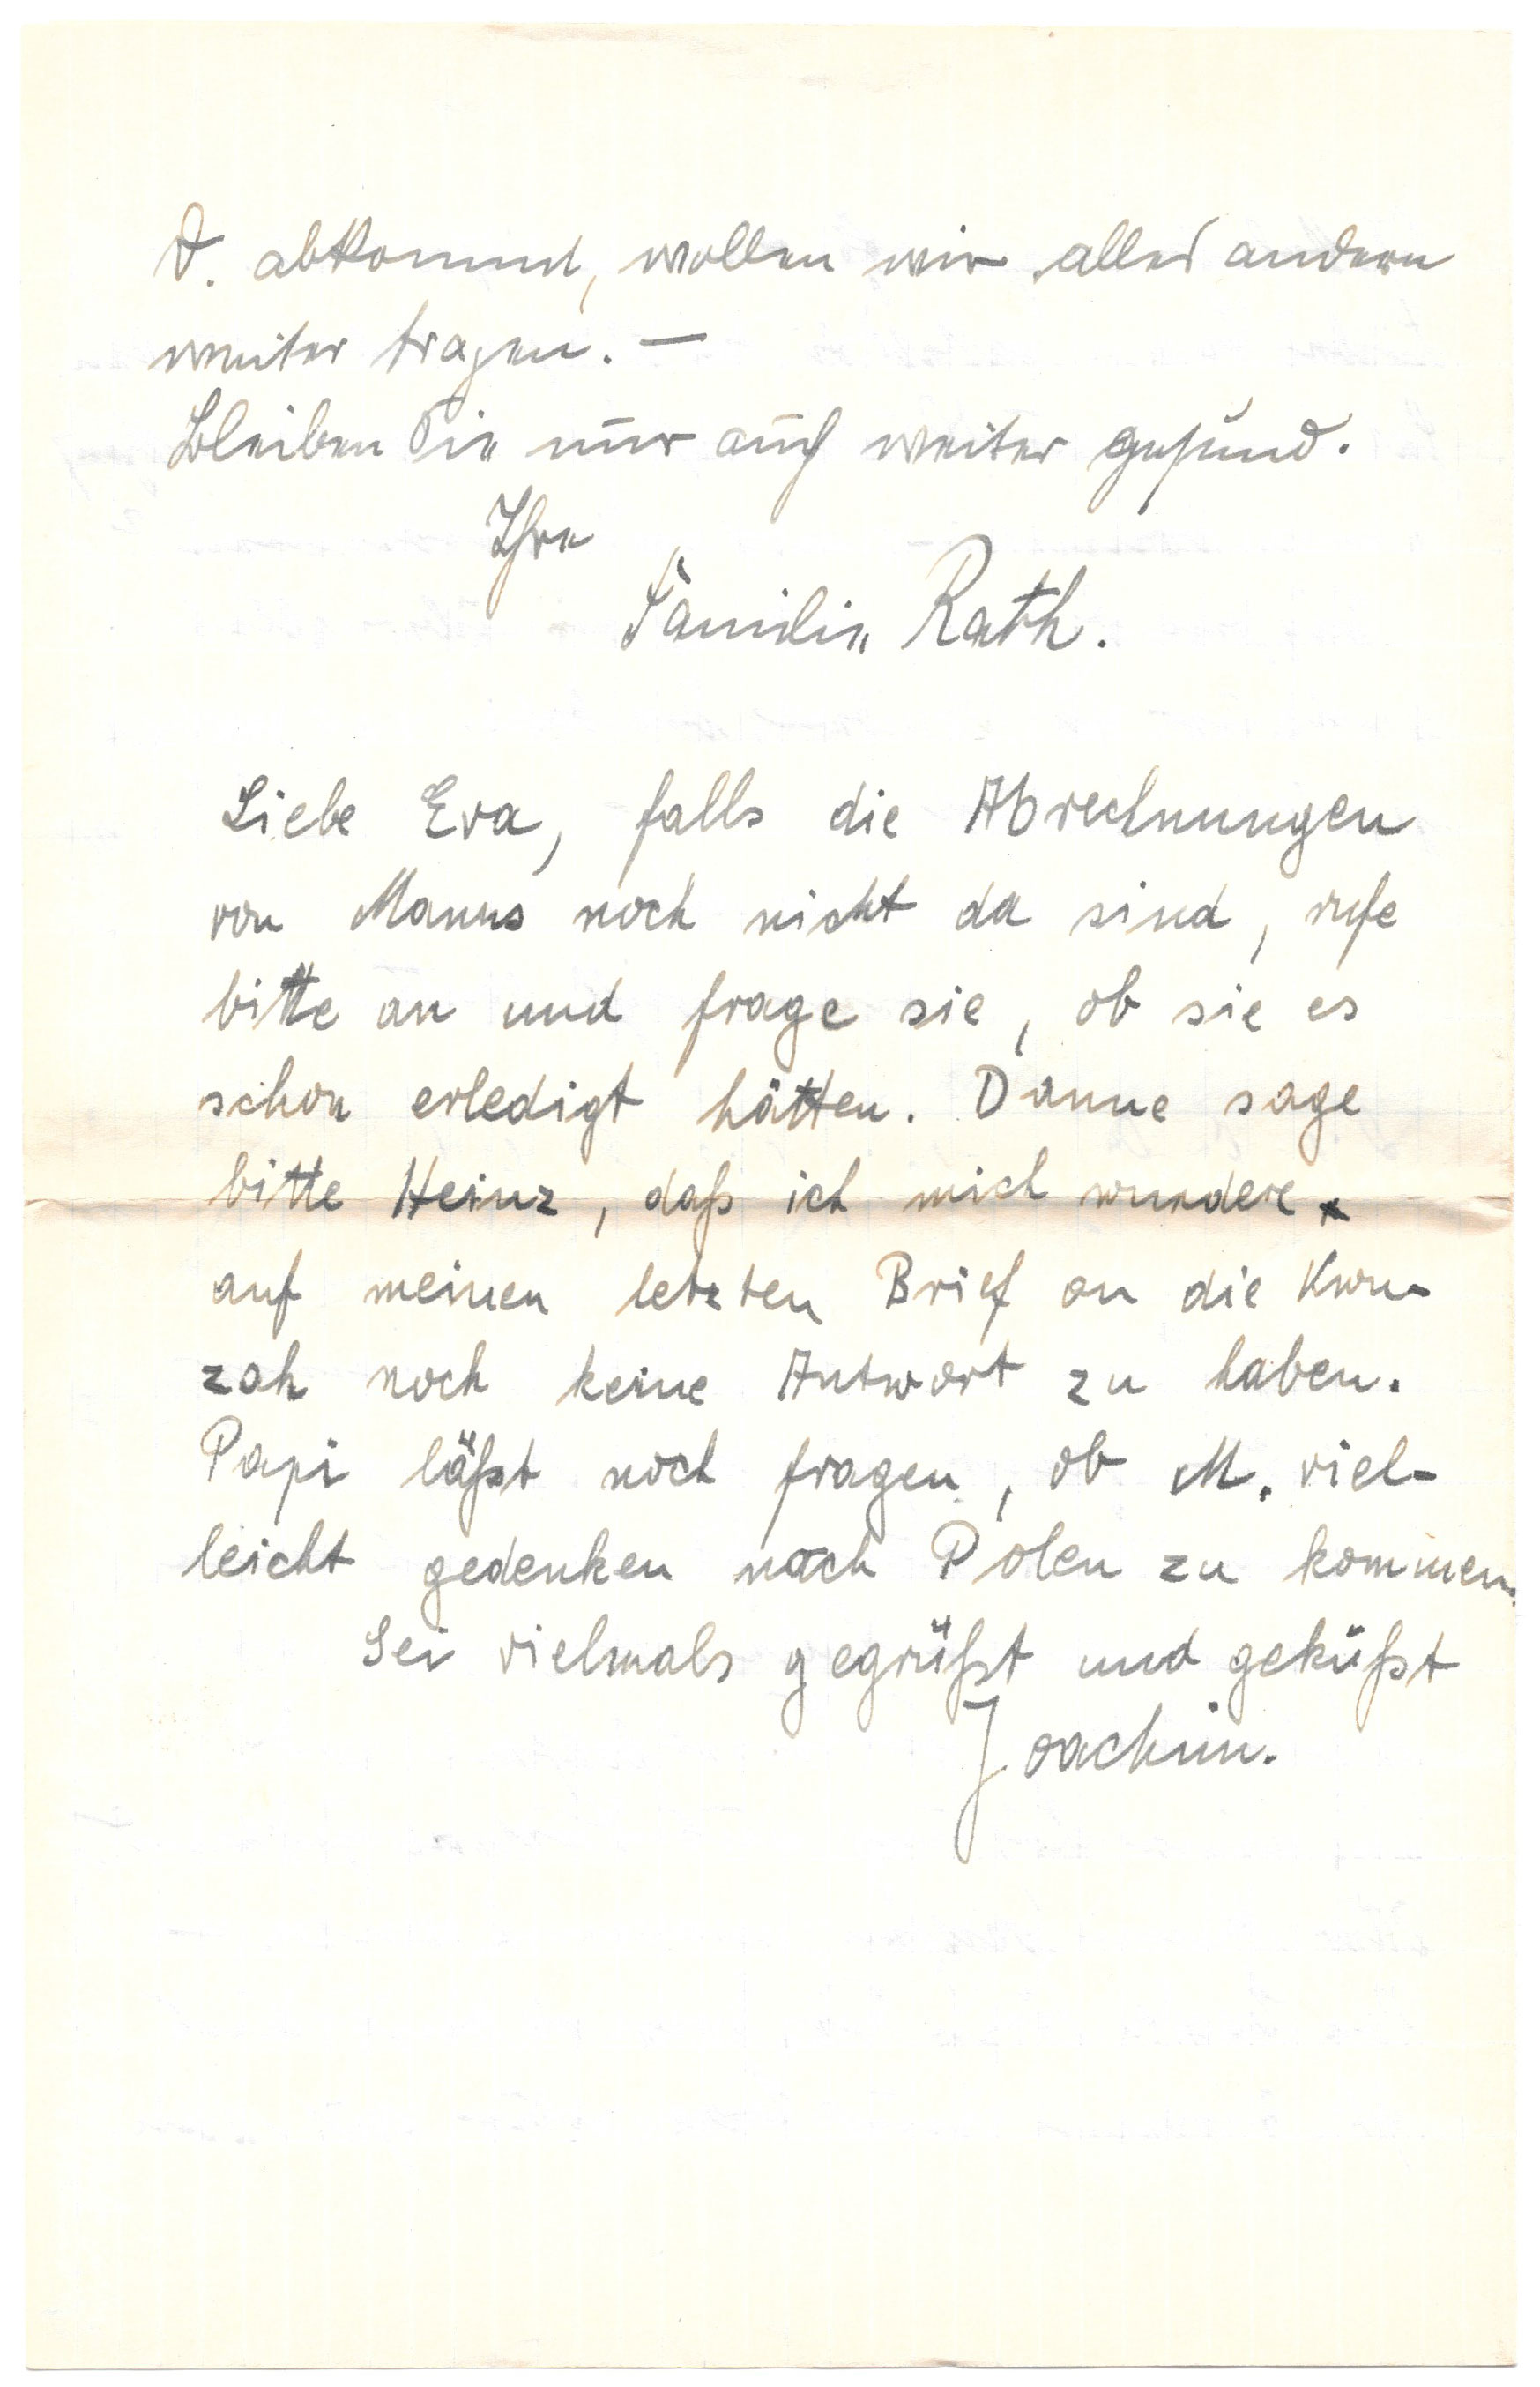 D. abkommt, wollen wir alles andere
weiter tragen. —
Bleiben Sie nur auch weiter gesund.
Ihre
Familie Rath.
Liebe Eva, falls die Abrechnungen
von Manns noch nicht da sind, rufe
bitte an und frage sie, ob sie es
schon erledigt hätten. Danne sage
bitte Heinz, daß ich mich wundere
auf meinen letzten Brief an die Kwu-
zah noch keine Antwort zu haben.
Papi läßt noch fragen, ob M. viel-
leicht gedenken nach Polen zu kommen.
Sei vielmals gegrüßt und geküßt
Joachim.